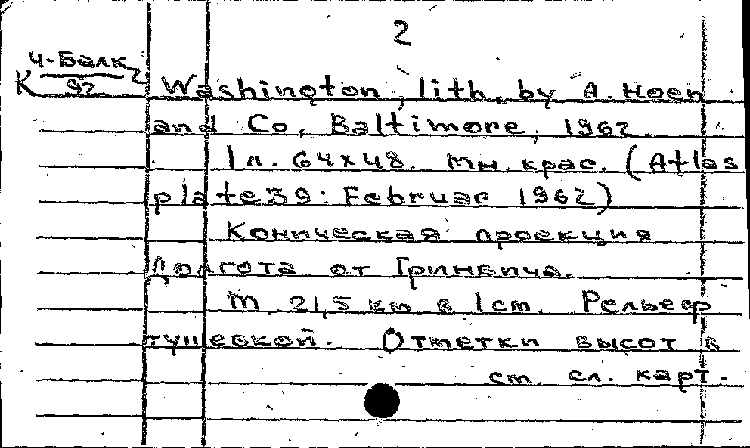 2
К 4-Балк 2
92
Washington, lith. by A. Hoen
and Co, Baltimore, 1962.
1 л. 64x48. Мн. крас. (Atlas
plate 39: Februar 1962)
Коническая проекция
Долгота от Гринвича.
М. 21,5 км в 1 см. Рельеф
тушевкой. Отметки высот в
ст. сл. карт.